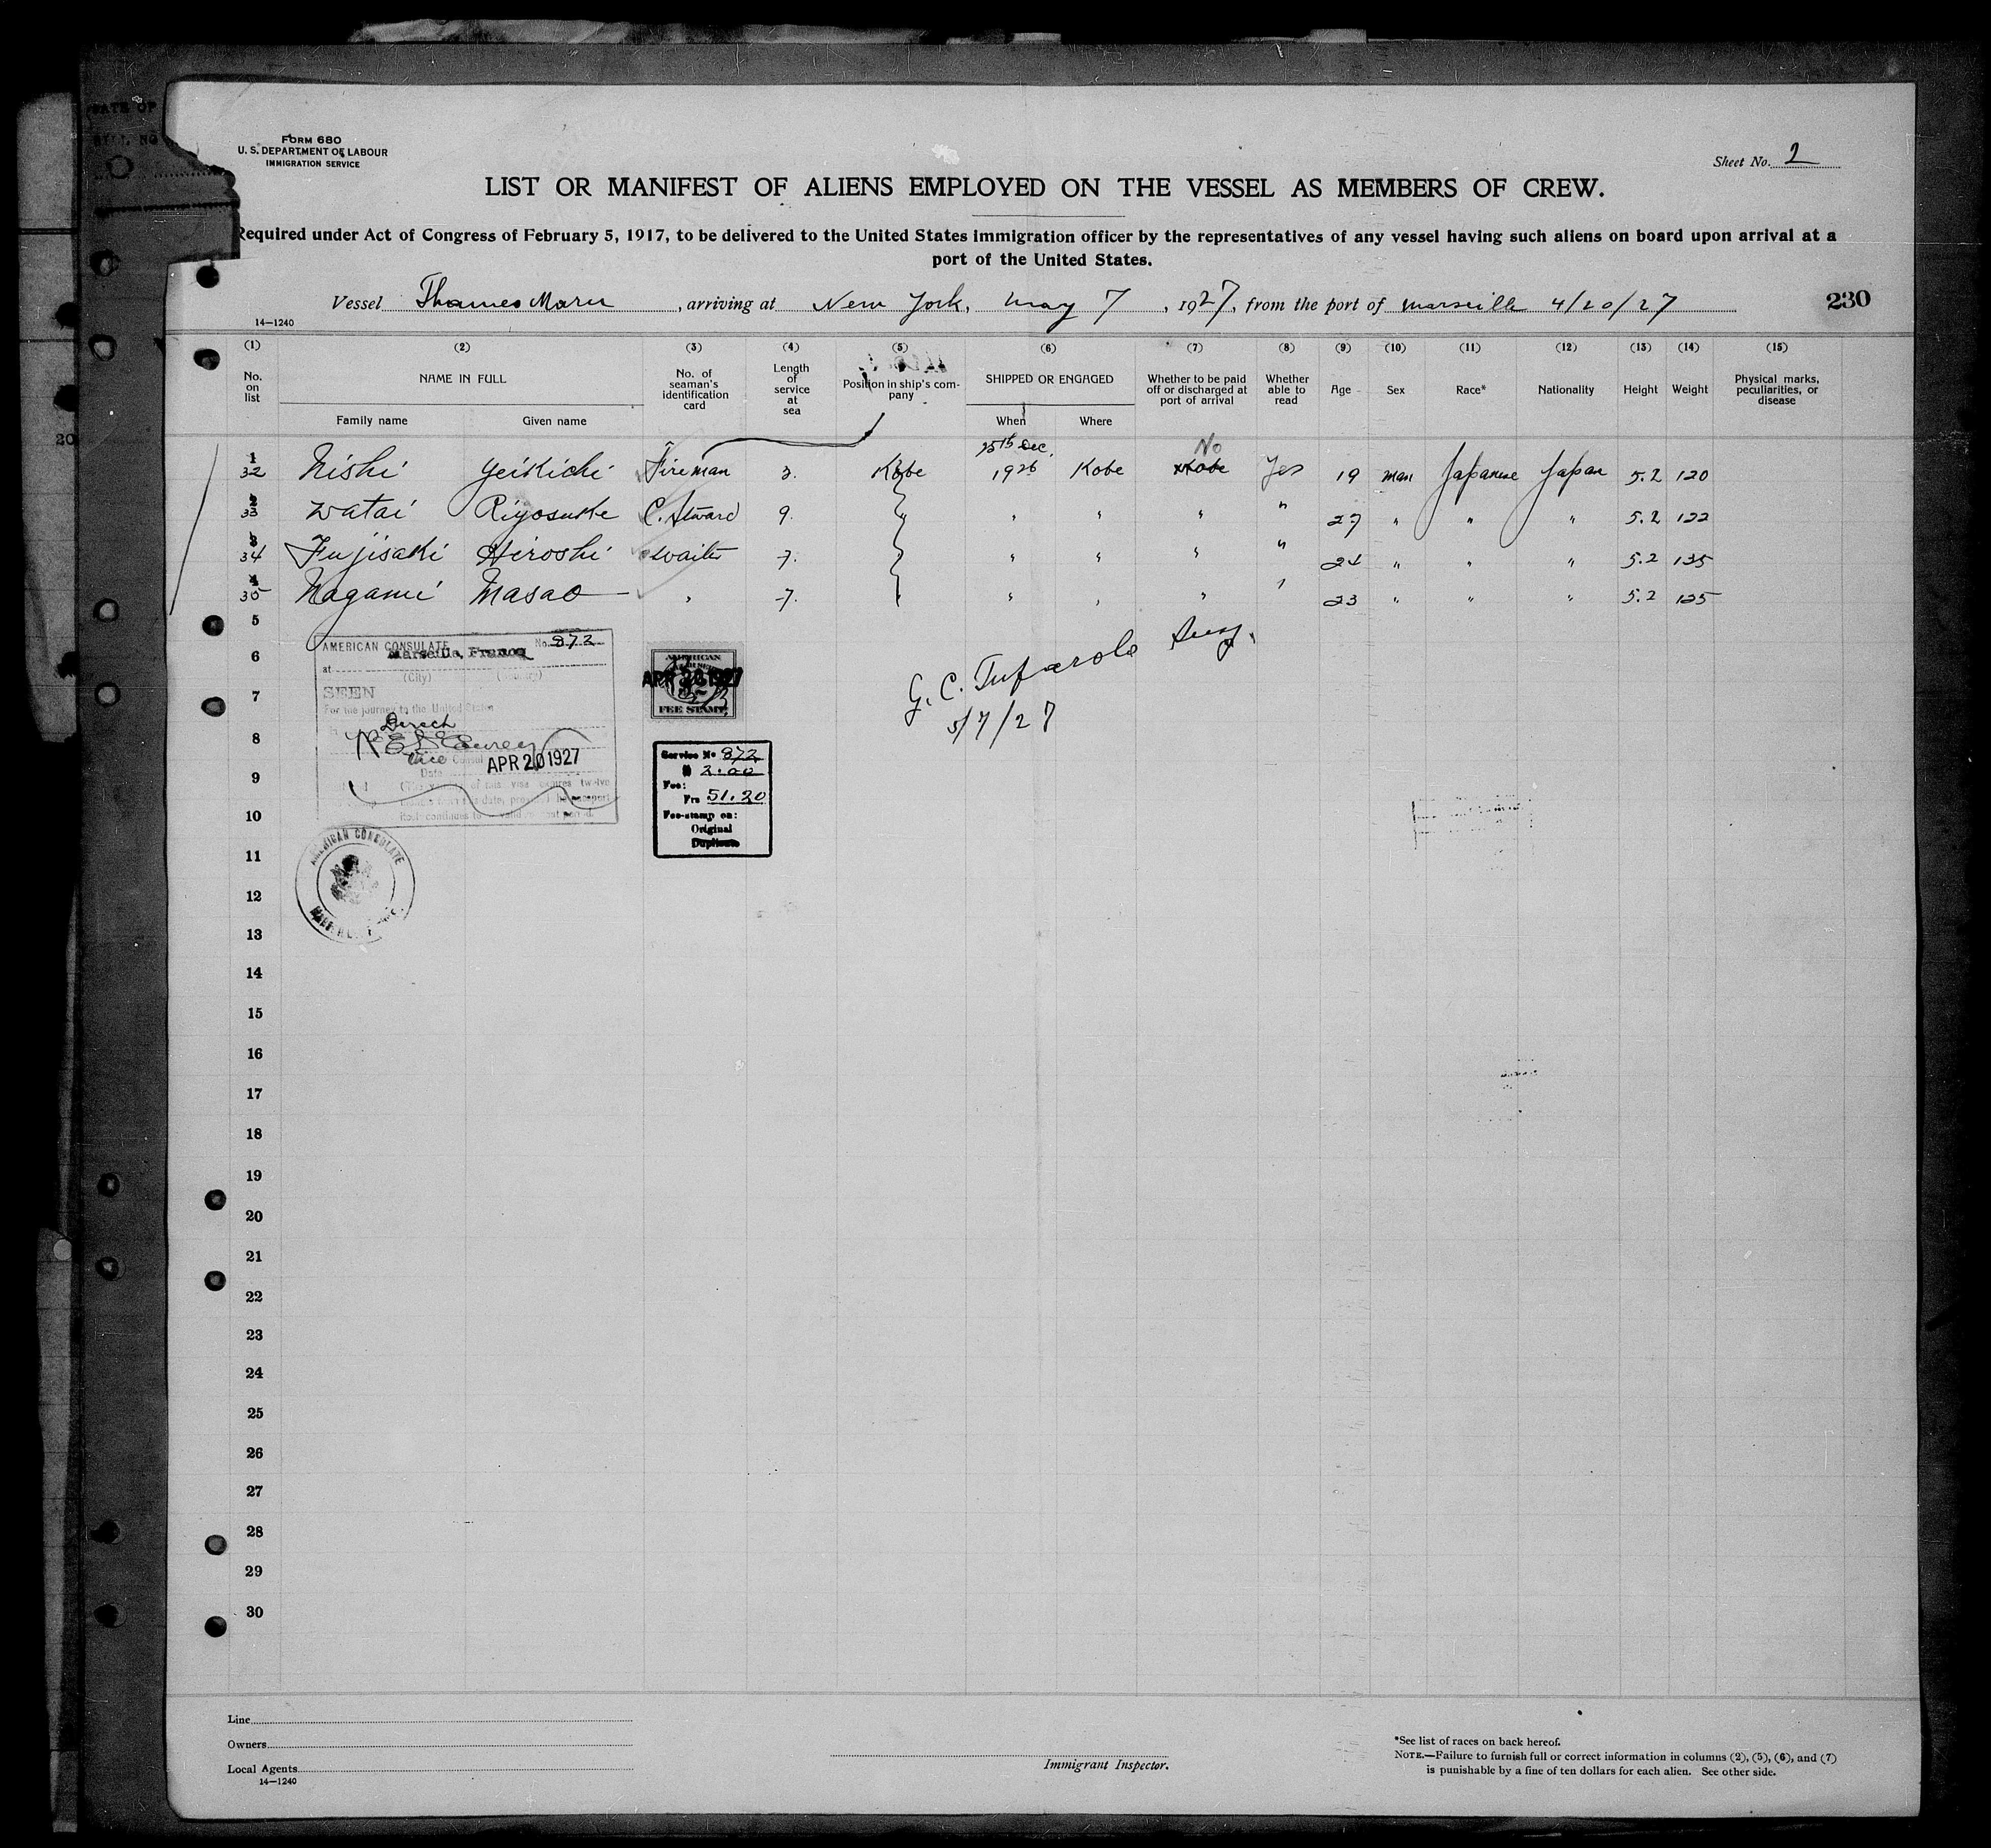 DATE OF
FORM 680
U. S. DEPARTMENT OF LABOUR
IMMIGRATION SERVICE
Sheet No. 2
LIST OR MANIFEST OF ALIENS EMPLOYED ON THE VESSEL AS MEMBERS OF CREW.
Required under Act of Congress of February 5, 1917, to be delivered to the United States immigration officer by the representatives of any vessel having such aliens on board upon arrival at a
port of the United States.
Vessel Thames Maru, arriving at New York, May 7, 1927, from the port of Marseille 4/20/27
230
14—1240
(1) (2) (3) (4) (5) (6) (7) (8) (9) (10) (11) (12) (13) (14) (15)
No. on list
NAME IN FULL
Family name
Given name
No. of seaman's identification card
Length of service at sea
Position in ship's company
SHIPPED OR ENGAGED
When
Where
Whether to be paid off or discharged at port of arrival
Whether able to read
Age
Sex
Race*
Nationality
Height
Weight
Physical marks, peculiarities, or disease
1 32 Nishi Yeikichi Fireman 3. Kobe 15th Dec. 1926 Kobe No Kobe Yes 19 man Japanese Japan 5.2 120
2 33 Watai Riyosuke C. Stward 9. " " " " 27 " " " 5.2 122
3 34 Fujisaki Hiroshi Waiter 7. " " " " 24 " " " 5.2 135
4 35 Nagami Masao " 7. " " " " 23 " " " 5.2 125
5
6
7
8
9
10
11
12
13
14
15
16
17
18
19
20
21
22
23
24
25
26
27
28
29
30
AMERICAN CONSULATE No. 872
at Marseille, France
(City) (Country)
SEEN
For the journey to the United States
Direct
Vice Consul
Date APR 20 1927
AMERICAN
APR 20 1927
FEE STAMP
Service No 872
$ 2.00
Fee:
Frs 51.20
Fee-stamp on:
Original
Duplicate
G. C. Tufarolo Surg.
5/7/27
AMERICAN CONSULATE
Line
Owners
Local Agents
14—1240
Immigrant Inspector.
*See list of races on back hereof.
NOTE.—Failure to furnish full or correct information in columns (2), (5), (6), and (7)
is punishable by a fine of ten dollars for each alien. See other side.